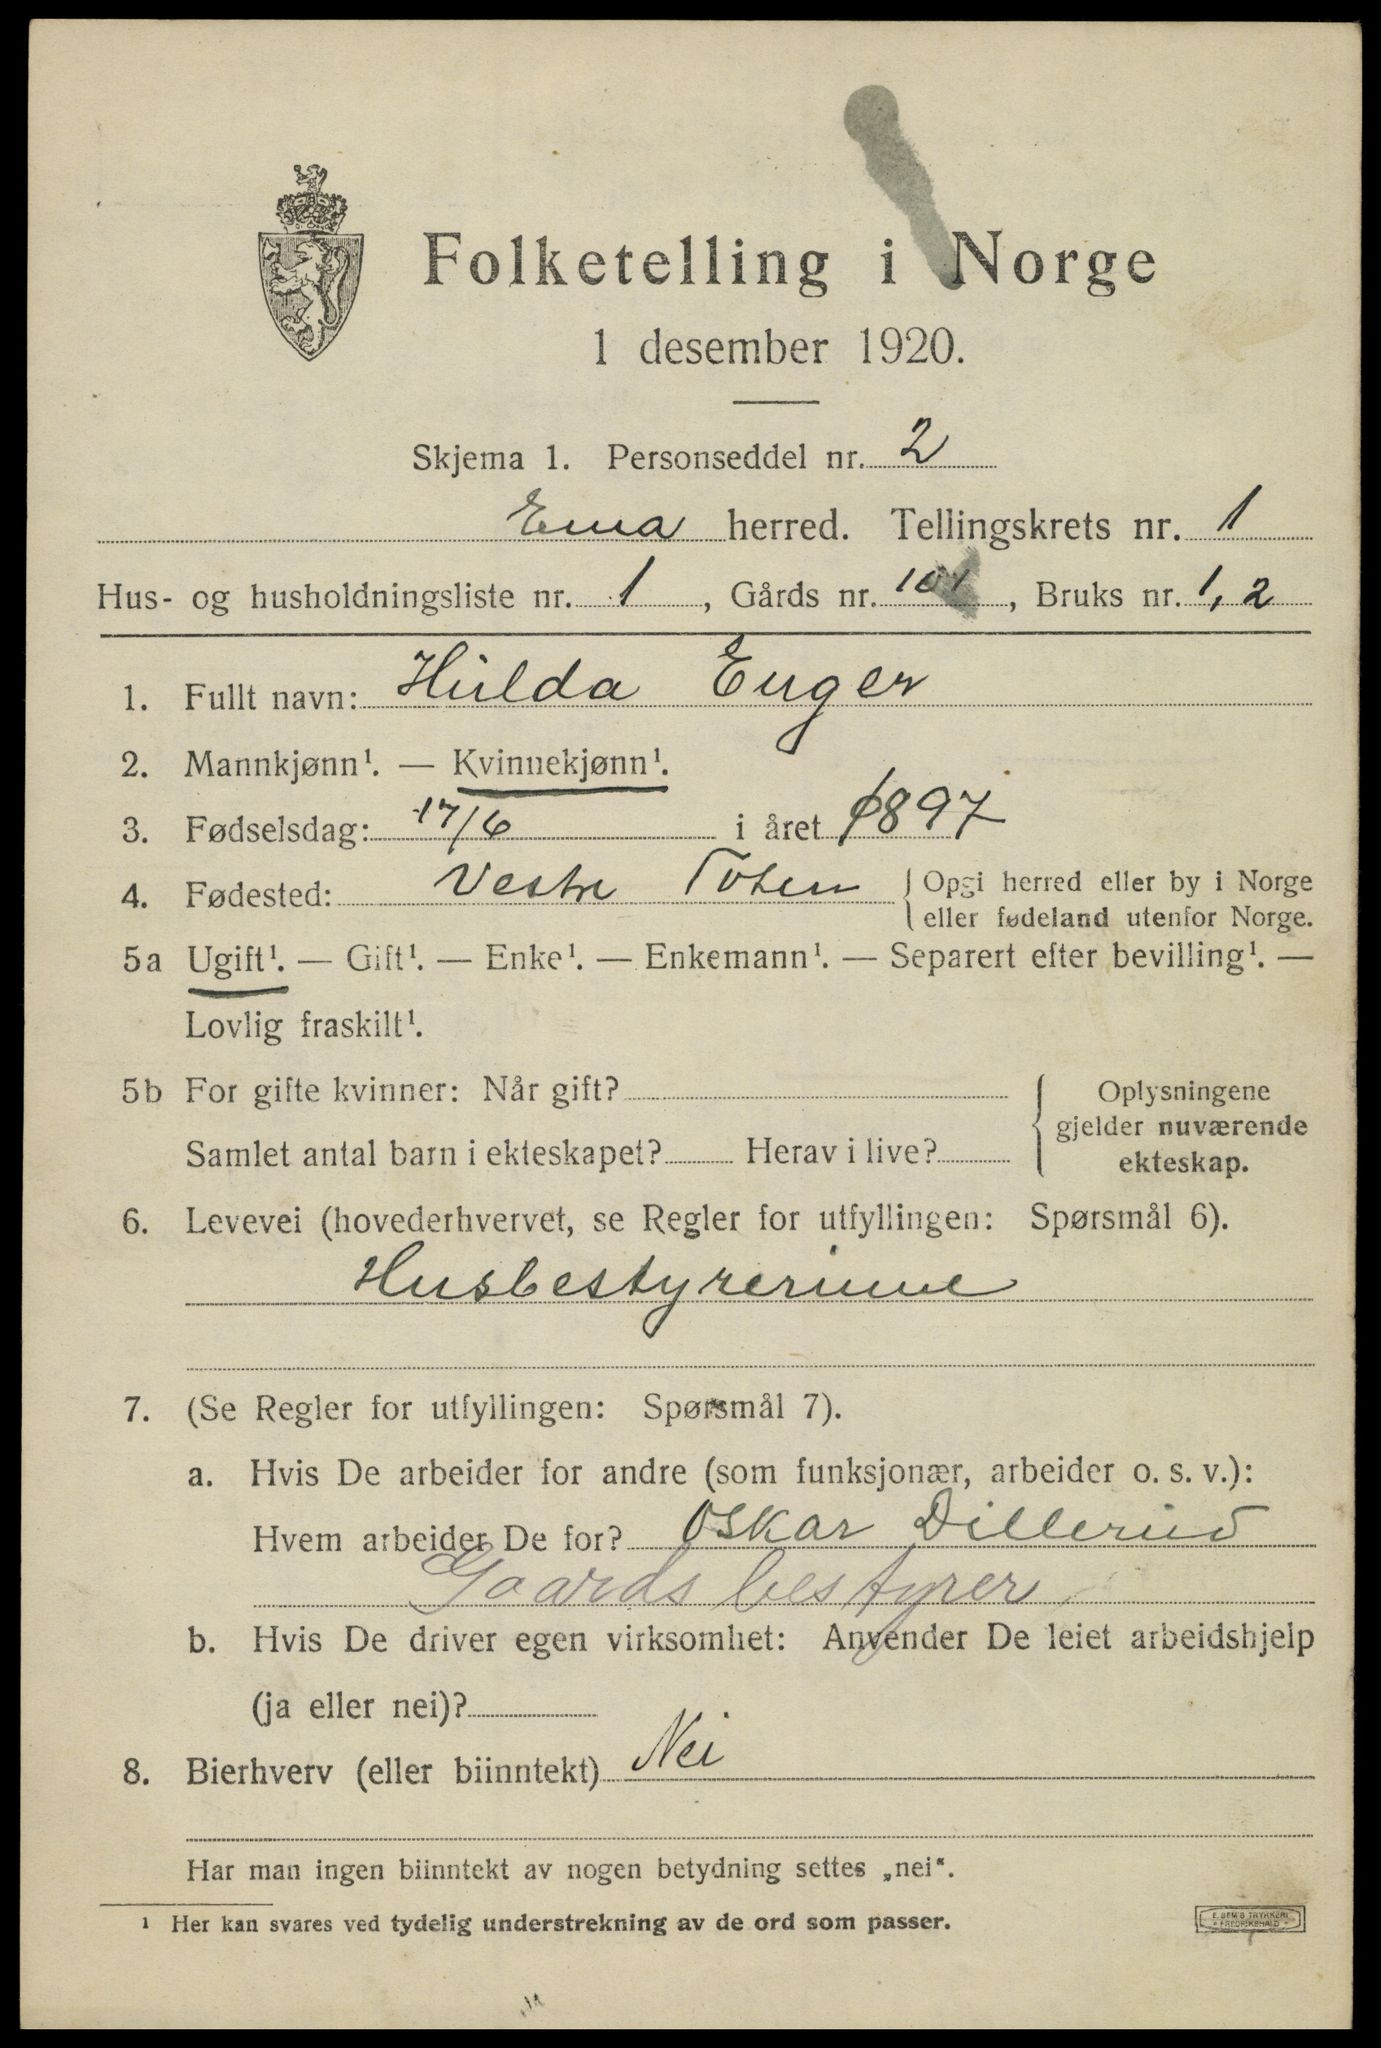 Folketelling i Norge
1 desember 1920.
Skjema 1. Personseddel nr. 2
Eina herred. Tellingskrets nr. 1
Hus- og husholdningsliste nr. 1, Gårds nr. 101, Bruks nr. 1, 2
1. Fullt navn: Hulda Enger
2. Mannkjønn¹. — Kvinnekjønn¹.
3. Fødselsdag: 17/6 i året 1897
4. Fødested: Vestre Toten { Opgi herred eller by i Norge
eller fødeland utenfor Norge.
5a Ugift¹. — Gift¹. — Enke¹. — Enkemann¹. — Separert efter bevilling¹. —
Lovlig fraskilt¹.
5b For gifte kvinner: Når gift?
Samlet antal barn i ekteskapet? Herav i live?
Oplysningene
gjelder nuværende
ekteskap.
6. Levevei (hovederhvervet, se Regler for utfyllingen: Spørsmål 6).
Husbestyrerinne
7. (Se Regler for utfyllingen: Spørsmål 7).
a. Hvis De arbeider for andre (som funksjonær, arbeider o. s. v.):
Hvem arbeider De for? Oskar Dillerud
Gaardsbestyrer
b. Hvis De driver egen virksomhet: Anvender De leiet arbeidshjelp
(ja eller nei)?
8. Bierhverv (eller biinntekt) Nei
Har man ingen biinntekt av nogen betydning settes „nei".
¹ Her kan svares ved tydelig understrekning av de ord som passer.
E. SEM'S TRYKKERI
FREDRIKSHALD